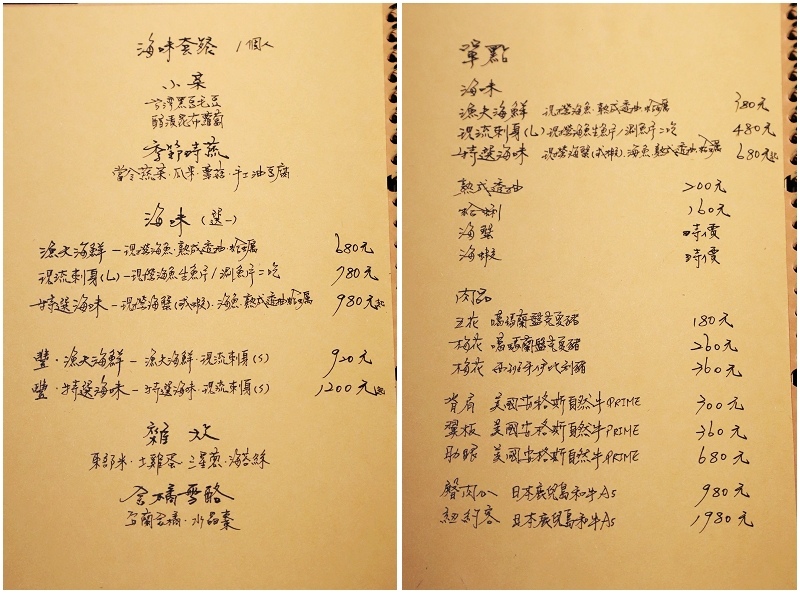 海味套餐 1個人
小菜
黑豆毛豆
昆布蘿蔔
季節時蔬
當令蔬菜·瓜果·蕈菇·手工油豆腐
海味(選一)
漁夫海鮮 - 現撈海魚·熟成透抽·蛤蠣 680元
現流刺身(L) - 現撈海魚生魚片/涮魚片二吃 780元
特選海味 - 現撈海蟹(或蝦)·海魚·熟成透抽·蛤蠣 980元起
豐·漁夫海鮮 - 漁夫海鮮·現流刺身(S) 920元
豐·特選海味 - 特選海味·現流刺身(S) 1200元起
雜炊
東部米·土雞蛋·三星蔥·海苔絲
金橘雪酪
宜蘭金橘·水晶棗
單點
海味
漁夫海鮮 現撈海魚·熟成透抽·蛤蠣 380元
現流刺身(L) 現撈海魚生魚片/涮魚片二吃 480元
特選海味 現撈海蟹(或蝦)·海魚·熟成透抽·蛤蠣 680元起
熟成透抽 200元
蛤蜊 160元
海蟹 時價
海蝦 時價
肉品
五花 噶瑪蘭黑豚豬 180元
梅花 噶瑪蘭黑豚豬 260元
梅花 西班牙伊比利豬 360元
背肩 美國安格斯自然牛PRIME 300元
翼板 美國安格斯自然牛PRIME 360元
肋眼 美國安格斯自然牛PRIME 680元
臀肉心 日本鹿兒島和牛A5 980元
紐約客 日本鹿兒島和牛A5 1980元